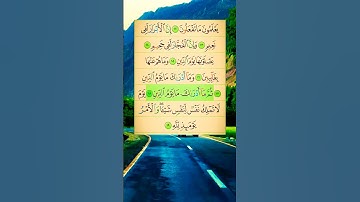 يَعْلَمُونَ مَا تَفْعَلُونَ ١٢ إِنَّ الْأَبْرَارَ لَفِي
نَعِيمٍ ١٣ وَإِنَّ الْفُجَّارَ لَفِي جَحِيمٍ ١٤
يَصْلَوْنَهَا يَوْمَ الدِّينِ ١٥ وَمَا هُمْ عَنْهَا
بِغَائِبِينَ ١٦ وَمَا أَدْرَاكَ مَا يَوْمُ الدِّينِ
١٧ ثُمَّ مَا أَدْرَاكَ مَا يَوْمُ الدِّينِ ١٨ يَوْمَ
لَا تَمْلِكُ نَفْسٌ لِنَفْسٍ شَيْئًا وَالْأَمْرُ
يَوْمَئِذٍ لِلَّهِ ١٩